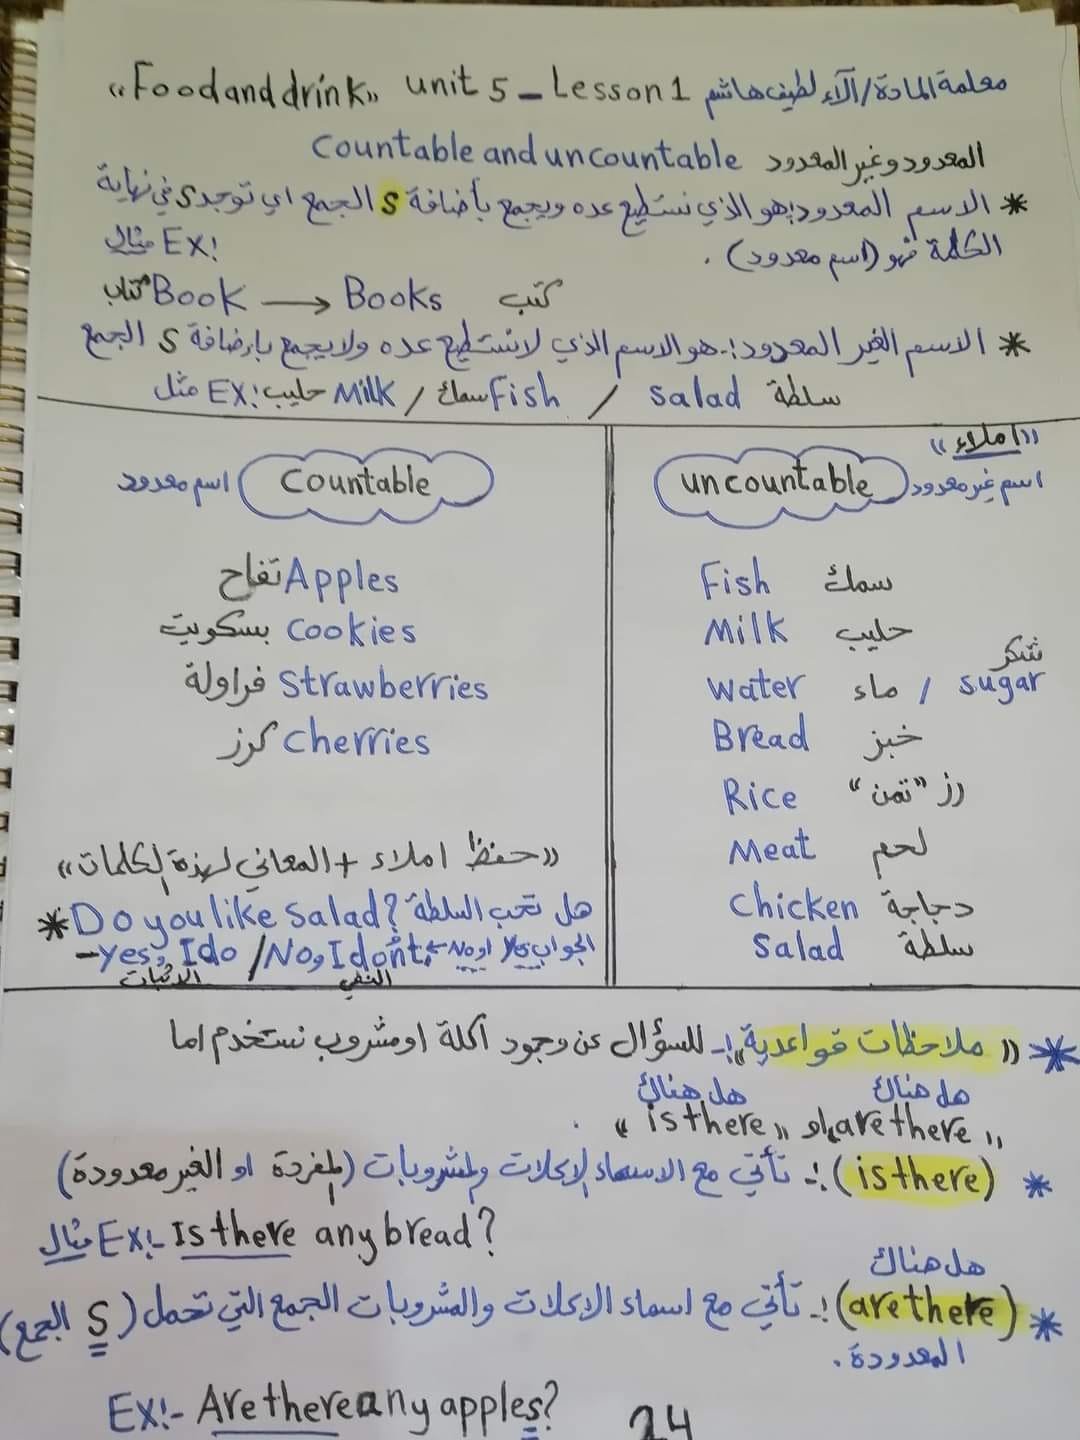 «Food and drink» unit 5 - Lesson 1 معلمة المادة/آلاء لطيف هاشم
Countable and uncountable المعدود وغير المعدود
* الاسم المعدود: هو الذي نستطيع عده ويجمع بأضافة s الجمع اي توجد s في نهاية
الكلمة فهو (اسم معدود). مثال EX:
كتاب Book → Books كتب
* الاسم الغير المعدود:- هو الاسم الذي لانستطيع عده ولايجمع بإضافة s الجمع
مثل EX: حليب Milk / سمك Fish / Salad سلطة
«املاء»
اسم معدود Countable
تفاح Apples
بسكويت Cookies
فراولة Strawberries
كرز Cherries
«حفظ املاء + المعاني لهذة الكلمات»
* Do you like Salad? هل تحب السلطة
- yes, I do / No, I don't. الجواب yes او No
الاثبات النفي
uncountable اسم غير معدود
Fish سمك
Milk حليب
Water ماء / sugar شكر
Bread خبز
Rice رز "تمن"
Meat لحم
Chicken دجاجة
Salad سلطة
* «ملاحظات قواعدية»:- للسؤال عن وجود أكلة او مشروب نستخدم اما
هل هناك هل هناك
"are there" او "is there" .
* (is there):- تأتي مع الاسماء الاكلات والمشروبات (المفردة او الغير معدودة)
مثال EX:- Is there any bread?
هل هناك
* (are there):- تأتي مع اسماء الاكلات والمشروبات الجمع التي تحمل (S الجمع)
المعدودة.
EX:- Are there any apples?
24